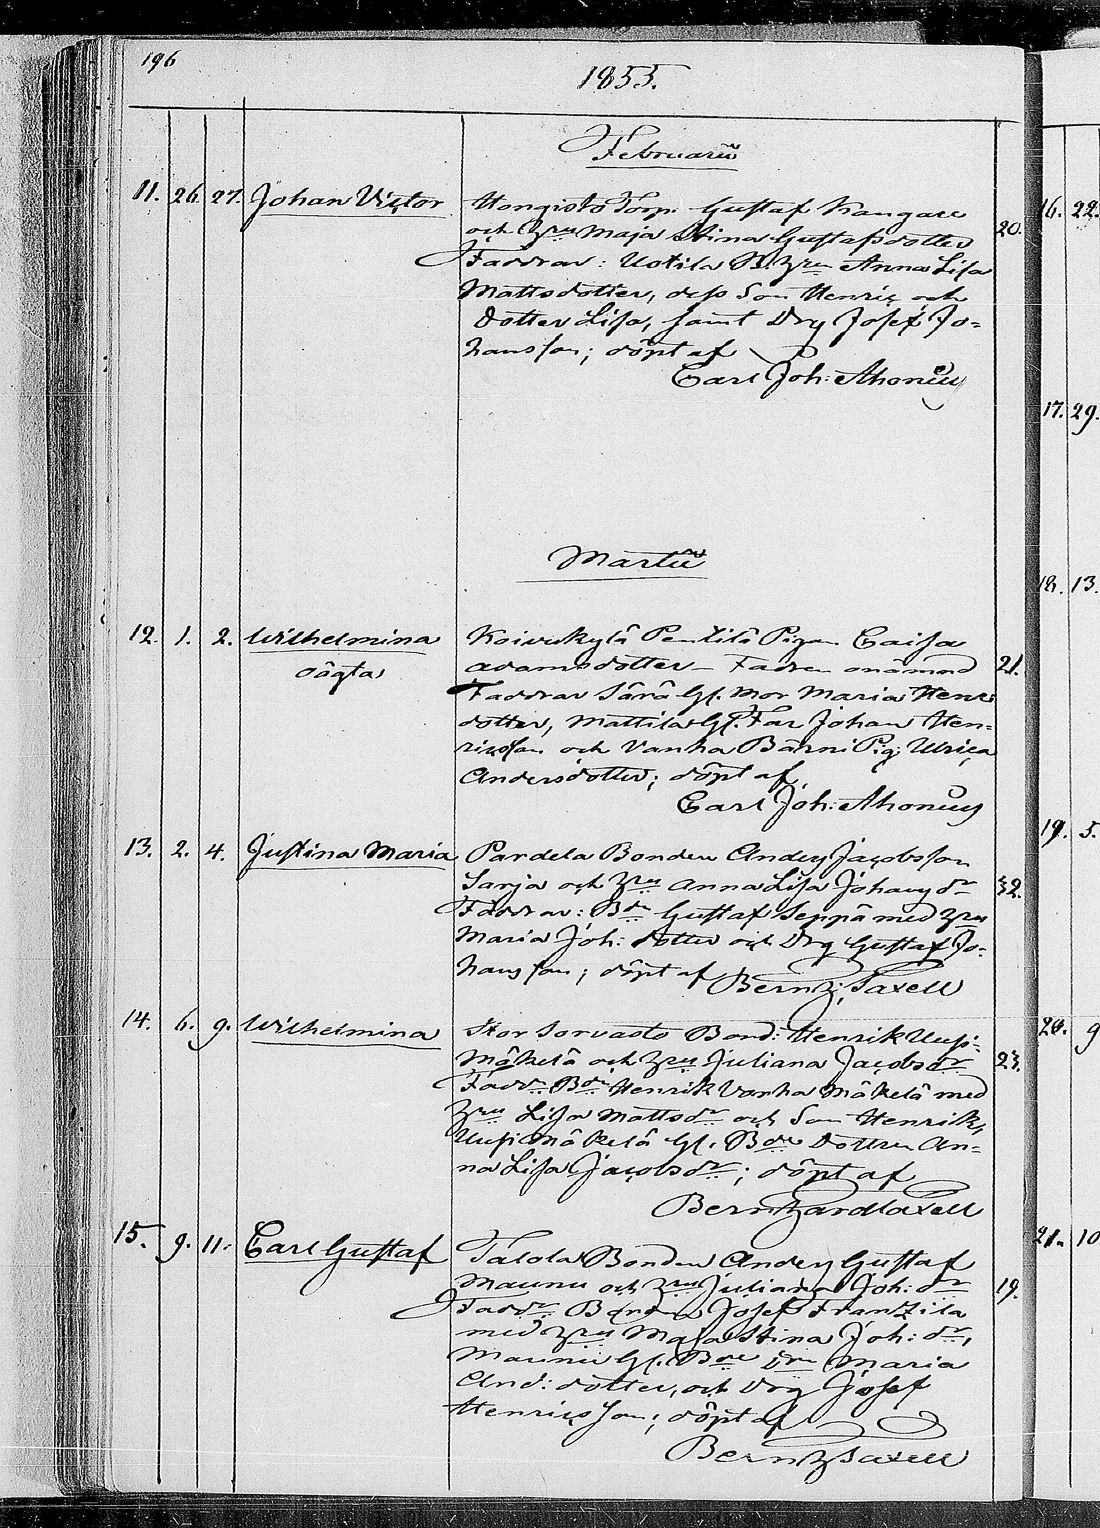 196
1855.
Februarii
11. 26. 27. Johan Victor
Hongisto Torp. Gustaf Kangare
och Hru Maja Stina Gustafsdotter
20.
Faddrar: Uotila B. Hru Anna Lisa
Mattsdotter, dess Son Henric och
Dotter Lisa, samt Drg Josef Jo=
hansson; döpt af
Carl Joh: Ahonius
Martii
12. 1. 2. Wilhelmina
oägta
Koivukylä Pentilä Pigan Caisa
Adamsdotter – Fadren onämnd
21.
Faddrar Särä Gl. Mor Maria Henr:
dotter, Mattila Gl. Far Johan Hen=
ricsson och Vanha Bärni Pig: Ulrica
Andersdotter; döpt af
Carl Joh: Ahonius
13. 2. 4. Justina Maria
Pardela Bonden Anders Jacobsson
Sarja och Hru Anna Lisa Johans dr
32.
Faddrar: Bdn Gustaf Seppä med Hru
Maria Joh: dotter och Drg Gustaf Jo=
hansson; döpt af Berntz: Saxell
14. 6. 9. Wilhelmina
Stor Sorvasto Bond: Henrik Uusi=
Mäkelä och Hru Juliana Jacobsdr
23.
Faddr Bdn Henrik Vanha Mäkelä med
Hru Lisa Mattsdr och Son Henrik,
Uusi Mäkelä Gl. Bde Dottren An=
na Lisa Jacobsdr; döpt af
Berntzard Saxell
15. 9. 11. Carl Gustaf
Talola Bonden Anders Gustaf
Maunu och Hru Juliana Joh: dr
19.
Faddr Bonden Josef Franzila
med Hru Maja Stina Joh: dr,
Maunu Gl. Bde Maria
And: dotter, och Drg Josef
Henricsson; döpt af
Berntz Saxell
16. 22.
17. 29.
18. 13.
19. 5.
20. 9
21. 10